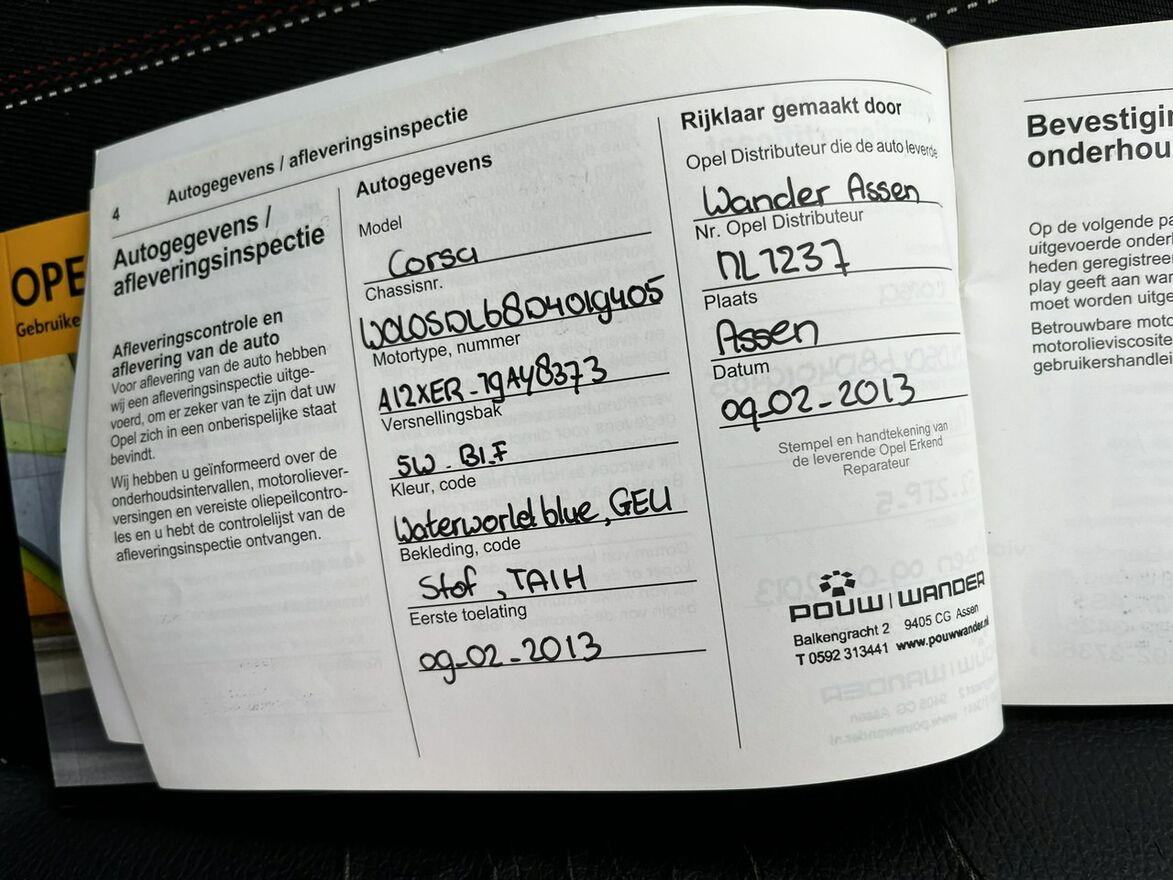 OPE
Gebruike
4 Autogegevens / afleveringsinspectie
Autogegevens /
afleveringsinspectie
Afleveringscontrole en
aflevering van de auto
Voor aflevering van de auto hebben
wij een afleveringsinspectie uitge-
voerd, om er zeker van te zijn dat uw
Opel zich in een onberispelijke staat
bevindt.
Wij hebben u geïnformeerd over de
onderhoudsintervallen, motoroliever-
versingen en vereiste oliepeilcontro-
les en u hebt de controlelijst van de
afleveringsinspectie ontvangen.
Autogegevens
Model
Corsa
Chassisnr.
W0L0SDL68D4019405
Motortype, nummer
A12XER-19AY8373
Versnellingsbak
5W-B1.F
Kleur, code
Waterworld blue, GEU
Bekleding, code
Stof, TAIH
Eerste toelating
09-02-2013
Rijklaar gemaakt door
Opel Distributeur die de auto leverde
Wander Assen
Nr. Opel Distributeur
NL7237
Plaats
Assen
Datum
09-02-2013
Stempel en handtekening van
de leverende Opel Erkend
Reparateur
POUW | WANDER
Balkengracht 2 9405 CG Assen
T 0592 313441 www.pouwwander.nl
Bevestigin
onderhou
Op de volgende pa
uitgevoerde onderh
heden geregistreer
play geeft aan wan
moet worden uitge
Betrouwbare moto
motorolieviscosite
gebruikershandlei